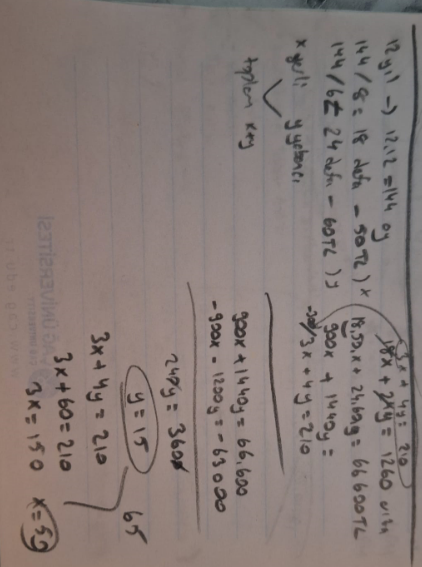 12 yıl → 12.12 = 144 ay
144 / 8 = 18 defa - 50TL ) x
144 / 6 = 24 defa - 60TL ) y
x yerli y yabancı
toplam x+y
3x + 4y = 210
18x + 24y = 1260
18.50.x + 24.60y = 66600TL
900x + 1440y =
-300/ 3x + 4y = 210
900x + 1440y = 66.600
-900x - 1200y = -63000
240y = 3600
y = 15
3x + 4y = 210
65
3x + 60 = 210
3x = 150 x = 50
ÜNİVERSİTESİ